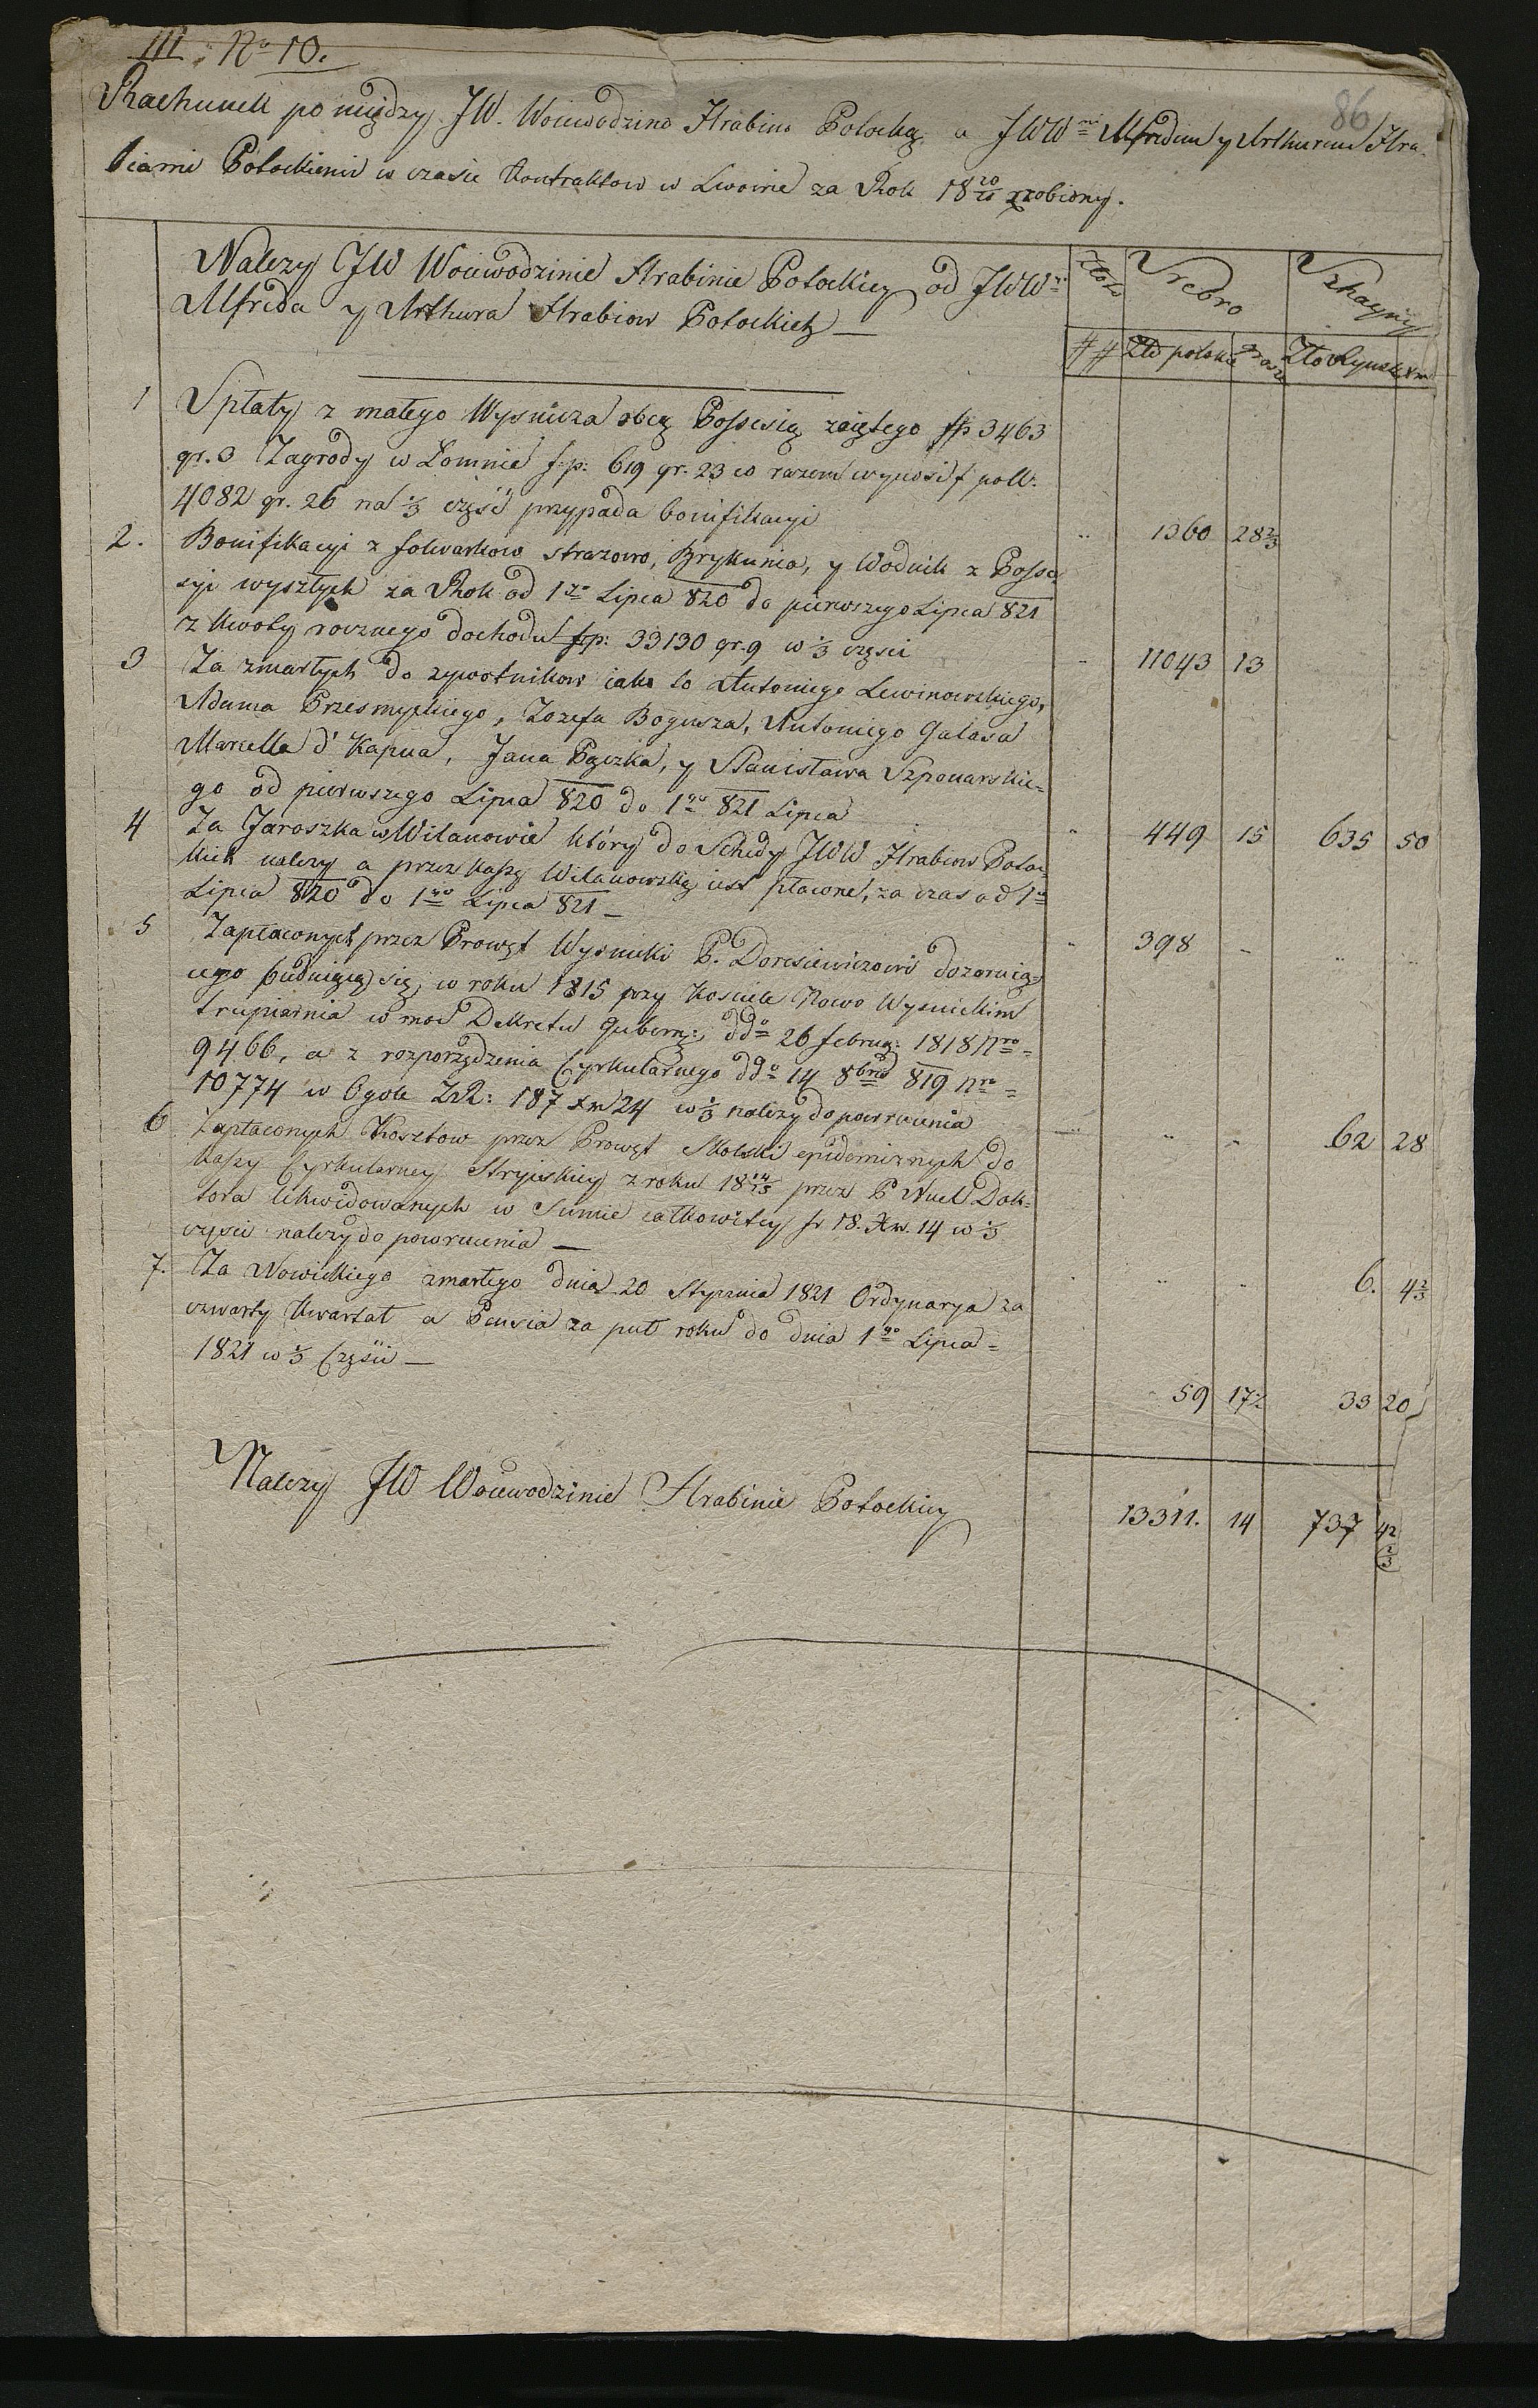 III. No 10.
86
Rachunek pomiędzy JW. Woiewodzino Hrabino Potocką a JWW mi Alfredem y Arthurem Hra-
biami Potockiemi w czasie Kontraktow w Lwowie za Rok 18 20/21 zrobiony.
Nalezy JW Woiewodzinie Hrabinie Potockiey od JWW
Alfreda y Arthura Hrabiow Potockich —
Złoto Srebro Szkayny
## Złto polskie Grosze Zło Rynsk Xr
1 Spłaty z małego Wysnicza obcą Possesią zaiętego fp 3463
gr. 3 Zagrody w Łomnie f:p: 619 gr. 23 co razem wynosi f pol:
4082 gr. 26 na 1/3 część przypada bonifikacyi 1360 28 2/3
2. Bonifikacyi z folwarkow Strazowo, Brykunia, y Wodnik z Posse-
syi wyszłych za Rok od 1go Lipca 820 do pierwszego Lipca 821
z kwoty rocznego dochodu fp: 33130 gr. 9 w 1/3 części 11043 13
3 Za zmarłych do zywotnikow iako to Antoniego Lewinowskiego,
Adama Przesmyckiego, Jozefa Bogusza, Antoniego Galasa
Marcella d'Kapua, Jana Pączka, y Stanisława Szponarskie-
go od pierwszego Lipca 820 do 1go 821 Lipca 449 15 635 50
4 Za Jaroszka w Wilanowie który do Schedy JWW Hrabiow Potoc
kich nalezy a przez kassę Wilanowską iest płacone, za czas od 1go
Lipca 820 do 1go Lipca 821 — 398 -
5 Zapłaconych przez Prowęt Wysnicki P. Doresiewiczowi dozoruią-
cego buduiącą się w roku 1815 przy Kosciele Nowo Wysnickim
trupiarnia w moc Dekretu Gubern: ddo 26 februa: 1818 Nro =
9466, a z rozporządzenia Cyrkularnego ddo 14 8bra 819 Nro =
10774 w Ogole ZR: 187 Xr 24 w 1/3 nalezy do powrocenia 62 28
6 Zapłaconych Kosztow przez Prowęt Skolski epidemicznych do
kassy Cyrkularney Stryiskiey z roku 18 14/15 przez P Dok-
tora likwidowanych w Sumie całkowitey fr 18. Xr. 14 w 1/3
części nalezy do powrocenia — 6. 4 2/3
7. Za Nowickiego zmarłego dnia 20 Stycznia 1821 Ordynarya za
czwarty kwartał a Pensia za puł roku do dnia 1go Lipca =
1821 w 1/3 Części — 59 17 1/2 33 20
Nalezy JW Woiewodzinie Hrabinie Potockiey 13311. 14 737 42 2/3